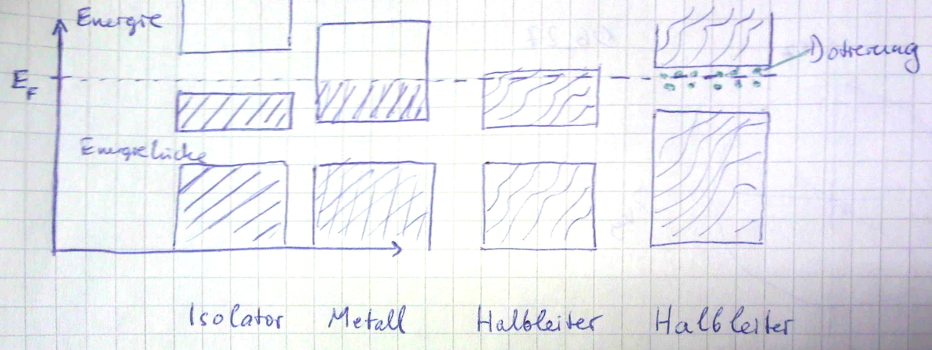 Energie
Dotierung
E_F
Energielücke
Isolator Metall Halbleiter Halbleiter